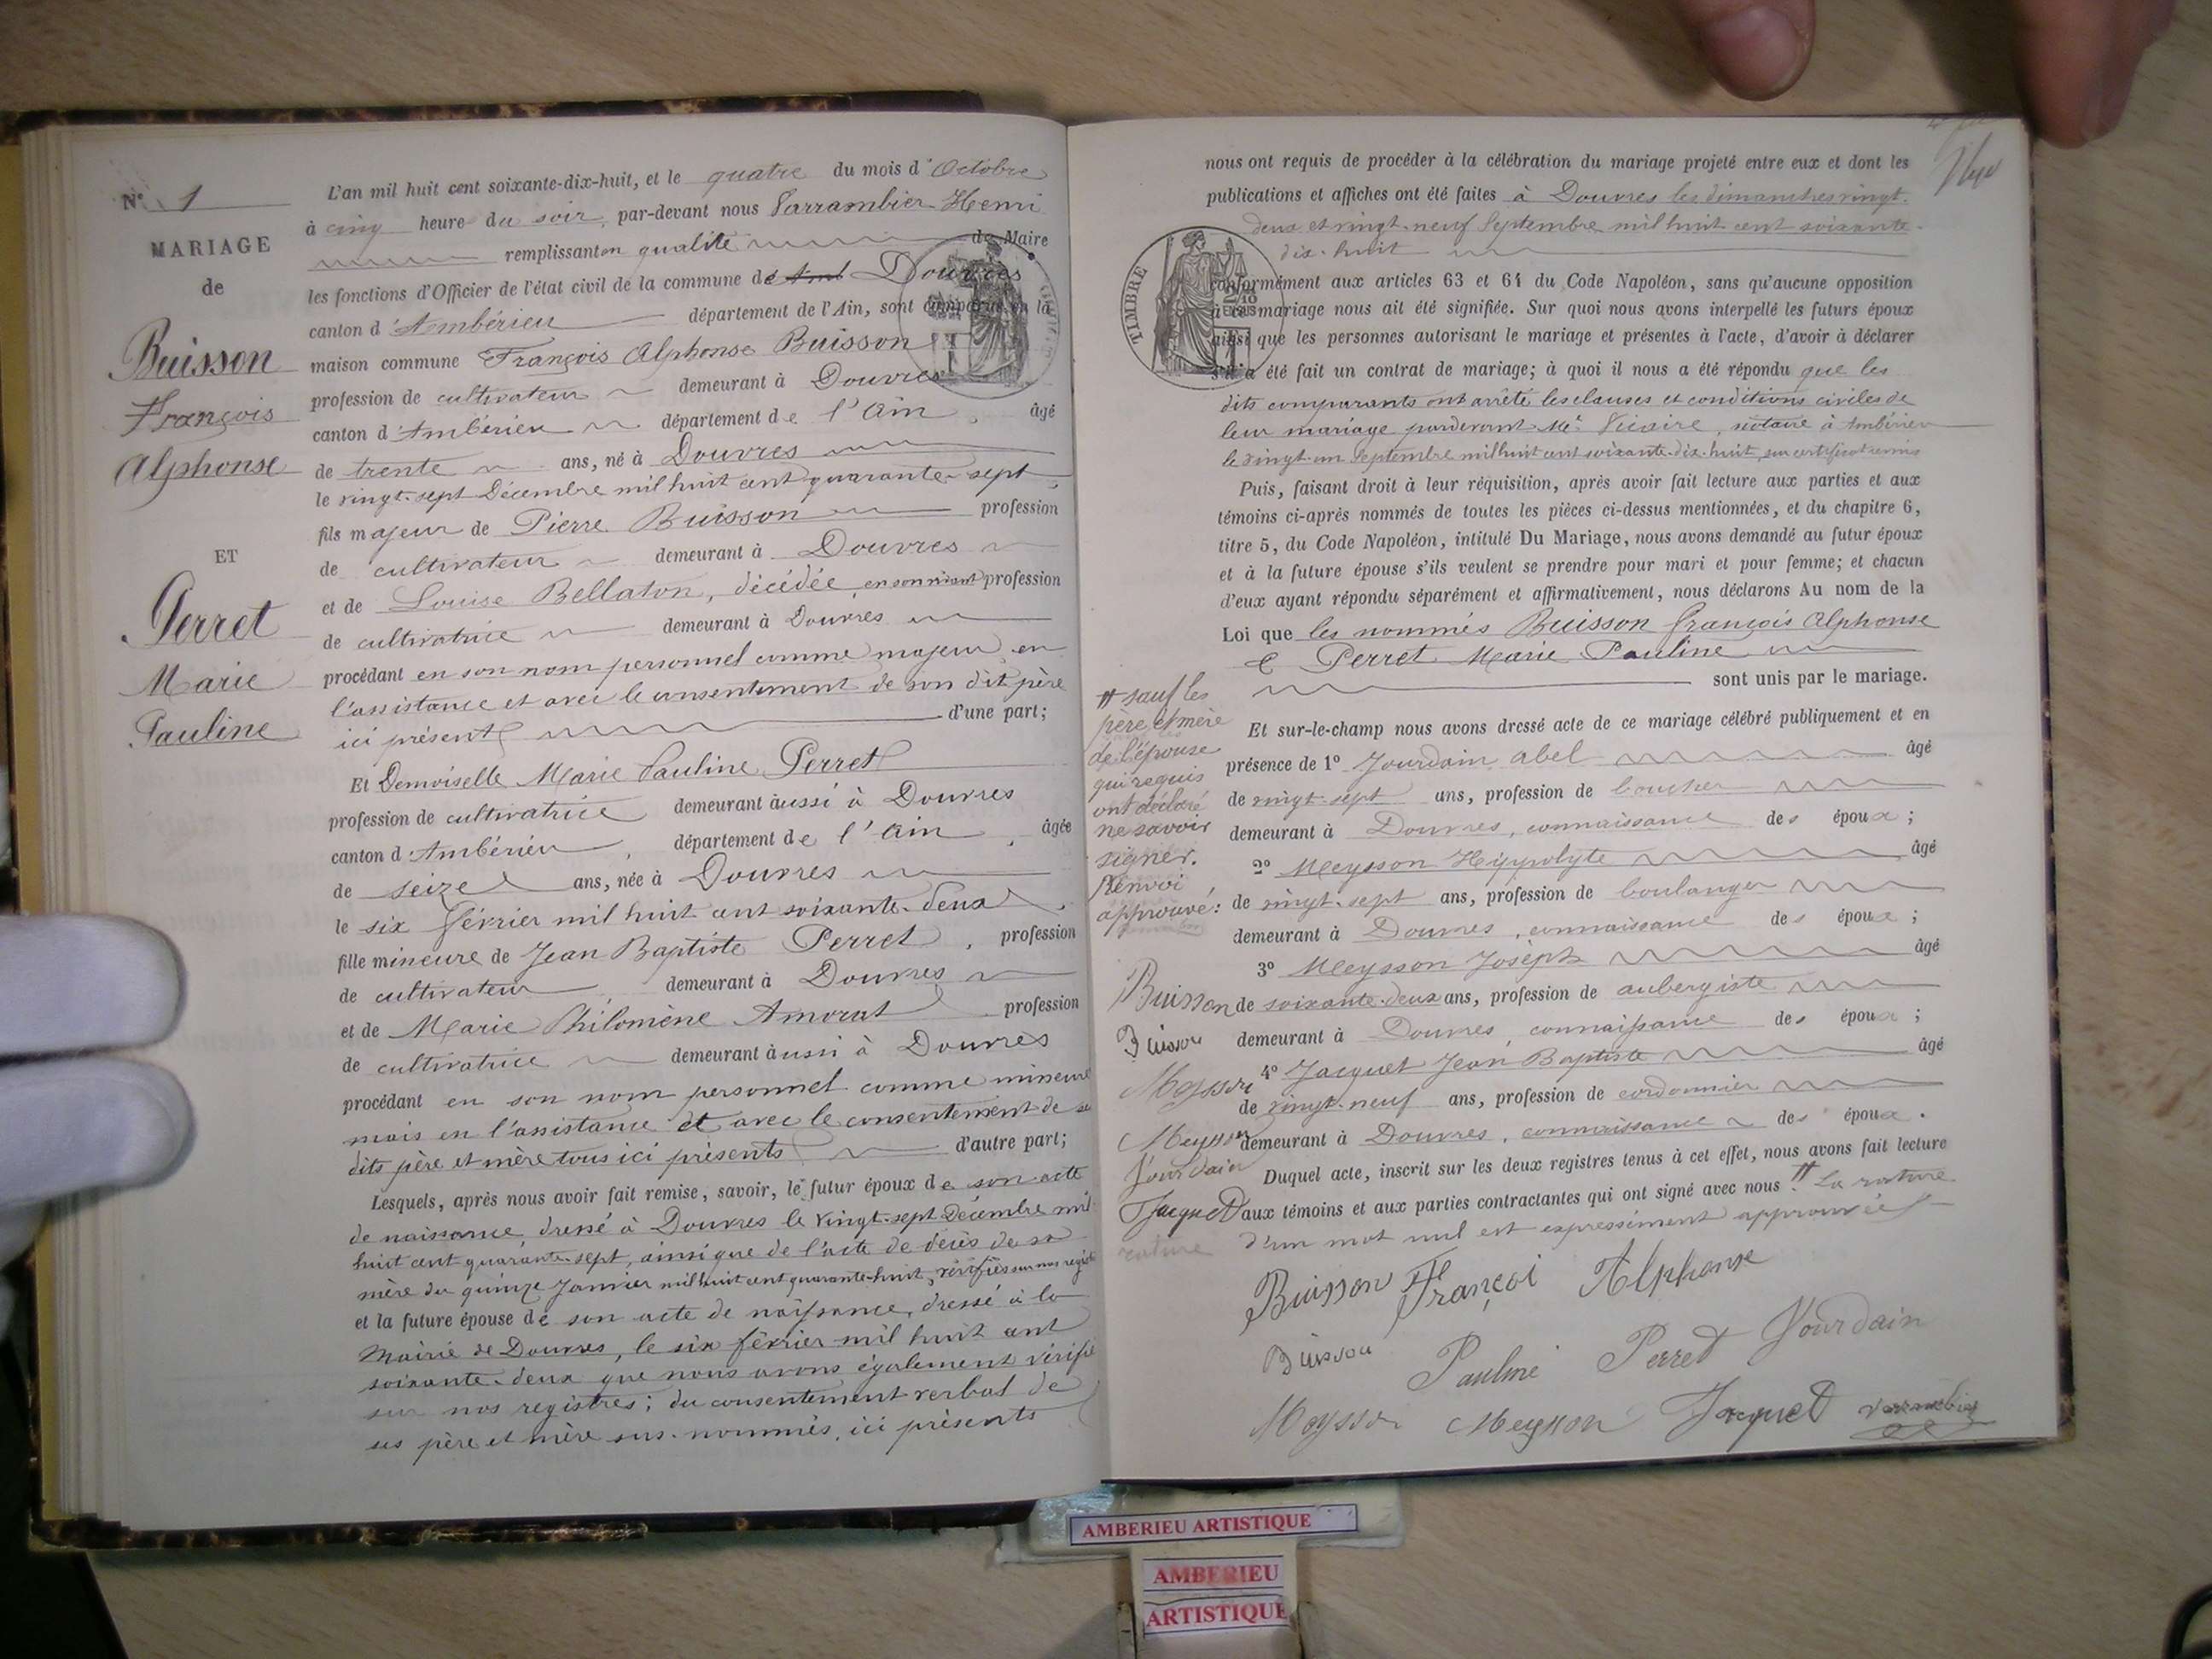 N° 1
MARIAGE
de
Buisson
François
Alphonse
ET
Perret
Marie
Pauline
L'an mil huit cent soixante-dix-huit, et le quatre du mois d'Octobre
à cinq heure du soir, par-devant nous Sarrambier Henri
remplissant en qualité de Maire
les fonctions d'Officier de l'état civil de la commune de Amb Douvres
canton d'Ambérieu département de l'Ain, sont comparus en la
maison commune François Alphonse Buisson
profession de cultivateur demeurant à Douvres
canton d'Ambérieu département de l'Ain, âgé
de trente ans, né à Douvres
le vingt-sept Décembre mil huit cent quarante-sept,
fils majeur de Pierre Buisson profession
de cultivateur demeurant à Douvres
et de Louise Bellaton, décédée, en son vivant profession
de cultivatrice demeurant à Douvres
procédant en son nom personnel comme majeur, en
l'assistance et avec le consentement de son dit père
ici présent d'une part;
Et Demoiselle Marie Pauline Perret
profession de cultivatrice demeurant aussi à Douvres
canton d'Ambérieu, département de l'Ain, âgée
de seize ans, née à Douvres
le six février mil huit cent soixante-deux,
fille mineure de Jean Baptiste Perret, profession
de cultivateur, demeurant à Douvres
et de Marie Philomène Amorat profession
de cultivatrice demeurant aussi à Douvres
procédant en son nom personnel comme mineure
mais en l'assistance et avec le consentement de ses
dits père et mère tous ici présents d'autre part;
Lesquels, après nous avoir fait remise, savoir, le futur époux de son acte
de naissance dressé à Douvres le vingt-sept Décembre mil
huit cent quarante-sept, ainsi que de l'acte de décès de sa
mère du quinze Janvier mil huit cent quarante-huit, vérifiés sur nos registres
et la future épouse de son acte de naissance, dressé à la
Mairie de Douvres, le six février mil huit cent
soixante-deux que nous avons également vérifié
sur nos registres; du consentement verbal de
ses père et mère sus-nommés, ici présents
nous ont requis de procéder à la célébration du mariage projeté entre eux et dont les
publications et affiches ont été faites à Douvres les dimanches vingt-
deux et vingt-neuf Septembre mil huit cent soixante-
dix-huit
TIMBRE
conformément aux articles 63 et 64 du Code Napoléon, sans qu'aucune opposition
à ce mariage nous ait été signifiée. Sur quoi nous avons interpellé les futurs époux
ainsi que les personnes autorisant le mariage et présentes à l'acte, d'avoir à déclarer
s'il a été fait un contrat de mariage; à quoi il nous a été répondu que les
dits comparants ont arrêté les clauses et conditions civiles de
leur mariage pardevant Me Vicaire, notaire à Ambérieu
le vingt-un Septembre mil huit cent soixante-dix-huit, sur certificat remis
Puis, faisant droit à leur réquisition, après avoir fait lecture aux parties et aux
témoins ci-après nommés de toutes les pièces ci-dessus mentionnées, et du chapitre 6,
titre 5, du Code Napoléon, intitulé Du Mariage, nous avons demandé au futur époux
et à la future épouse s'ils veulent se prendre pour mari et pour femme; et chacun
d'eux ayant répondu séparément et affirmativement, nous déclarons Au nom de la
Loi que les nommés Buisson François Alphonse
& Perret Marie Pauline
sont unis par le mariage.
Et sur-le-champ nous avons dressé acte de ce mariage célébré publiquement et en
présence de 1° Jourdain Abel âgé
de vingt-sept ans, profession de boucher
demeurant à Douvres, connaissance des époux;
2° Meysson Hippolyte âgé
de vingt-sept ans, profession de boulanger
demeurant à Douvres, connaissance des époux;
3° Meysson Joseph âgé
de soixante-deux ans, profession de aubergiste
demeurant à Douvres, connaissance des époux;
4° Jacquet Jean Baptiste âgé
de vingt-neuf ans, profession de cordonnier
demeurant à Douvres, connaissance des époux.
Duquel acte, inscrit sur les deux registres tenus à cet effet, nous avons fait lecture
aux témoins et aux parties contractantes qui ont signé avec nous # La rature
d'un mot nul est expressément approuvée
# sauf les
père et mère
de l'épouse
qui requis
ont déclaré
ne savoir
signer.
Renvoi
approuvé:
Buisson
Buisson
Meysson
Meysson
Jourdain
Jacquet
rature
Buisson Françoi Alphonse
Buisson Pauline Perret Jourdain
Meysson Meysson Jacquet Sarrambier
AMBERIEU ARTISTIQUE
AMBERIEU
ARTISTIQUE